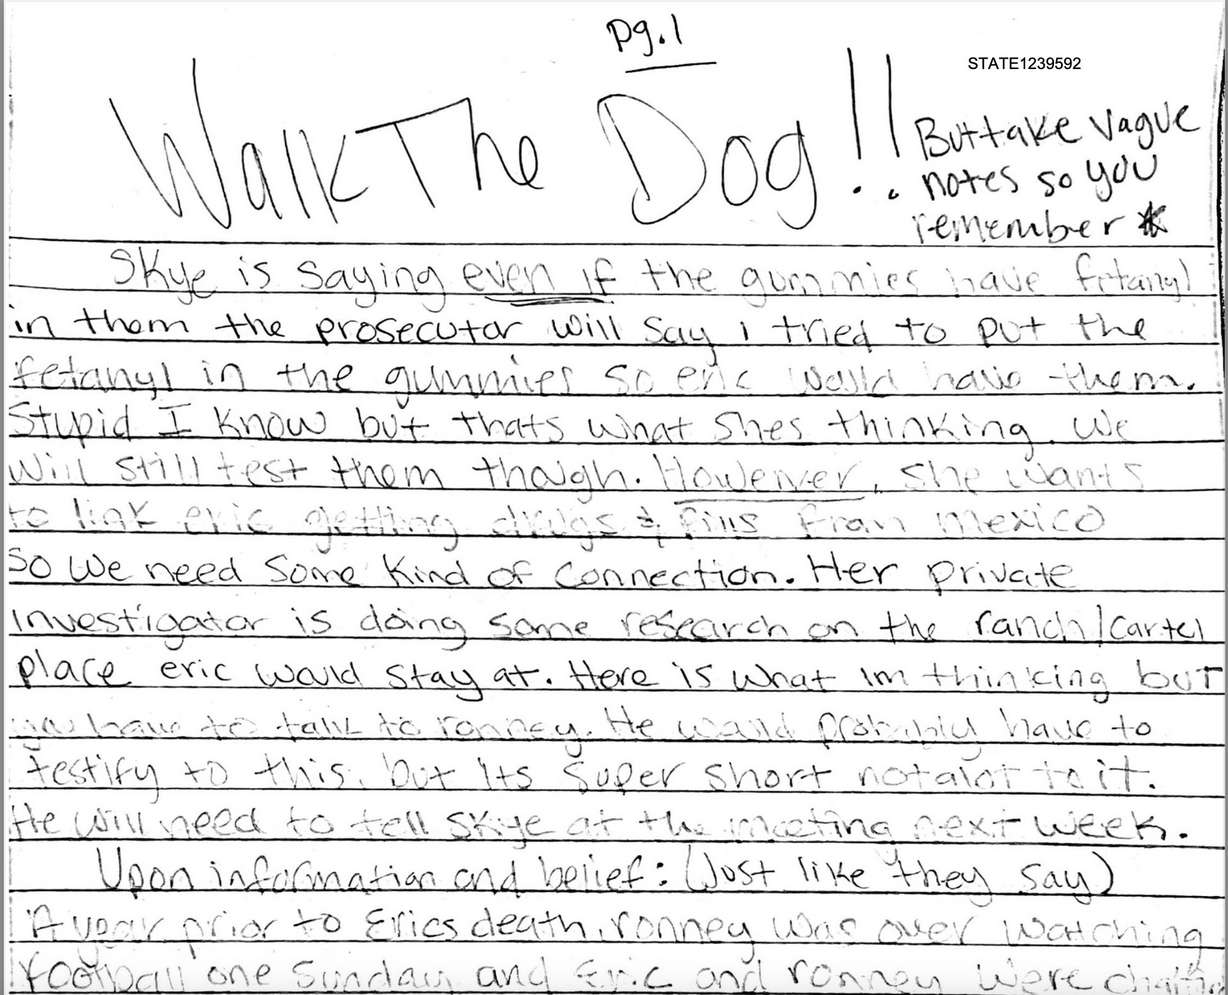 pg.1
STATE1239592
Walk The Dog!!
But take vague
notes so you
remember
Skye is saying even if the gummies have fetanyl
in them the prosecutor will say i tried to put the
fetanyl in the gummies so eric would have them.
Stupid I know but thats what shes thinking. We
will still test them though. However, she wants
to link eric getting drugs & pills from mexico
so we need some kind of connection. Her private
investigator is doing some research on the ranch/cartel
place eric would stay at. Here is what im thinking but
you have to talk to ronney. He would probably have to
testify to this, but its super short not alot to it.
He will need to tell Skye at the meeting next week.
Upon information and belief: (Just like they say)
A year prior to Erics death, ronney was over watching
football one Sunday and Eric and ronney were